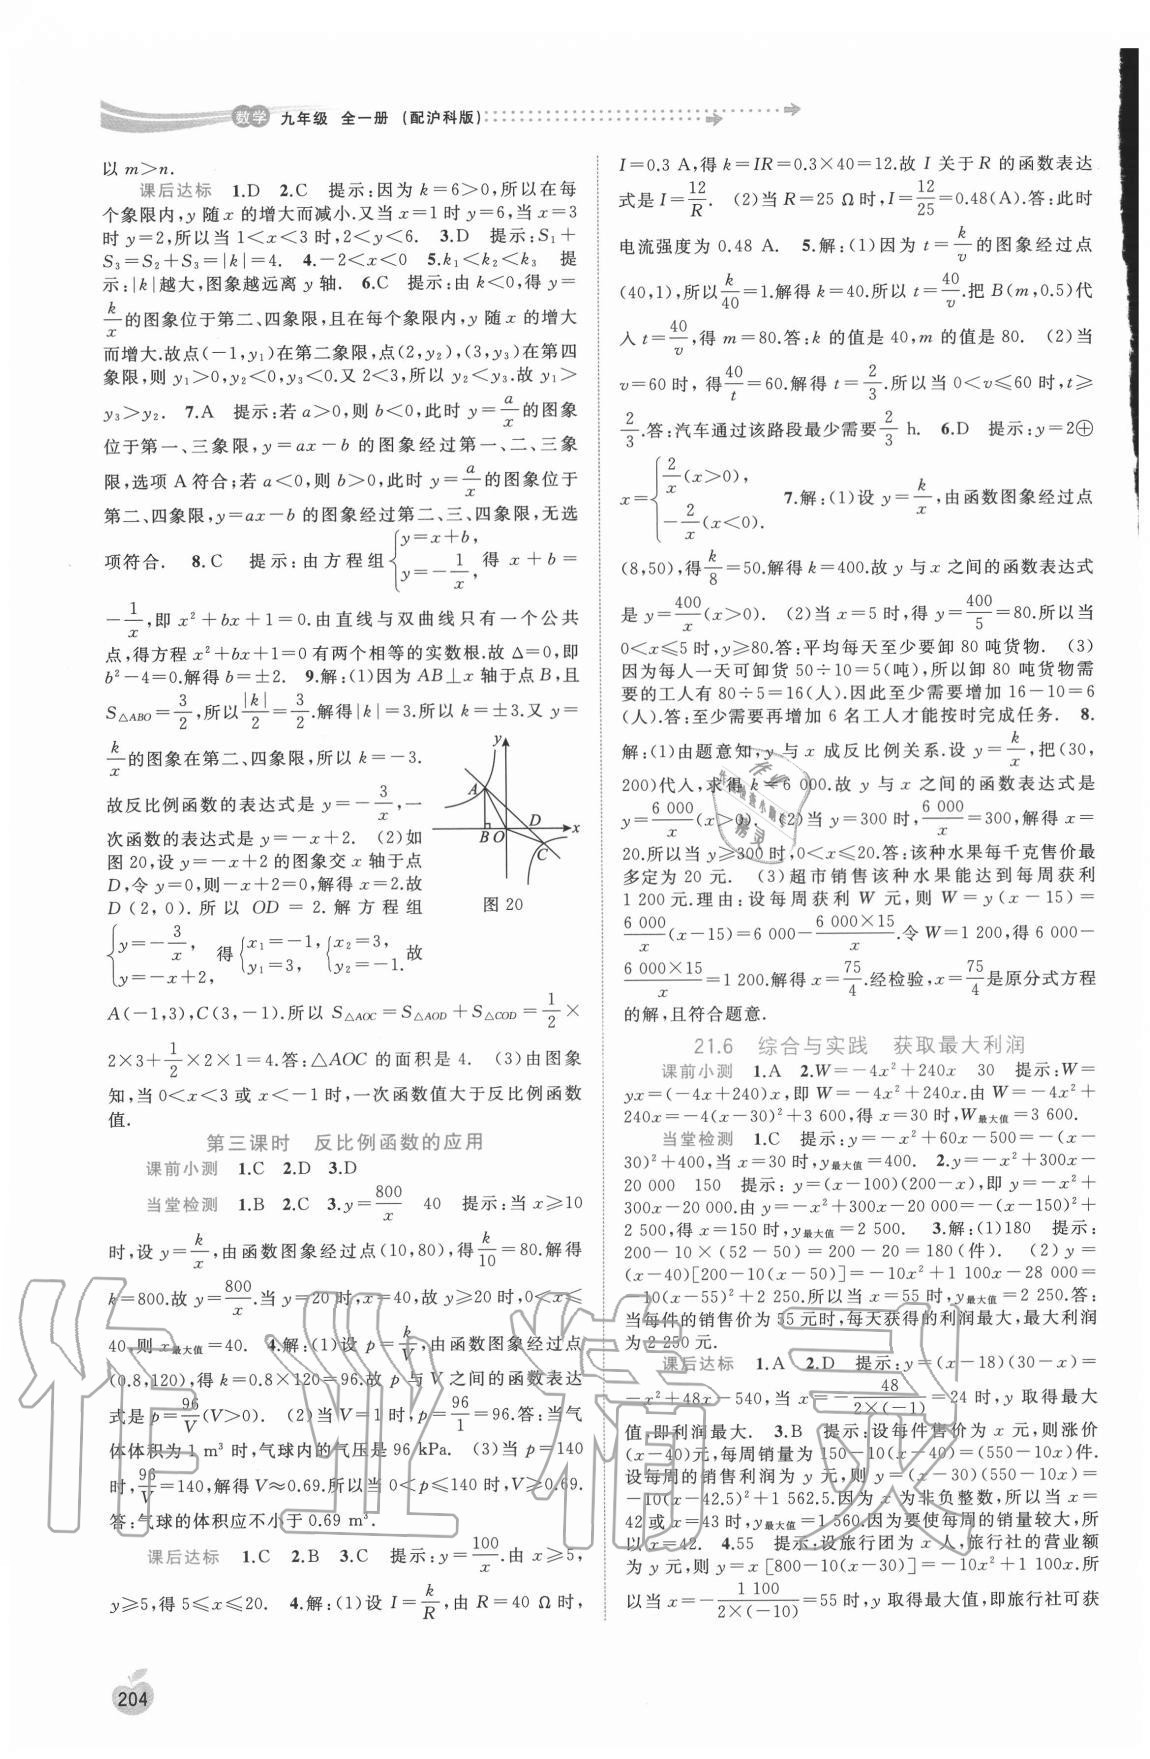 数学 九年级 全一册 (配沪科版)
以 m>n.
课后达标 1.D 2.C 提示:因为 k=6>0,所以在每
个象限内,y 随 x 的增大而减小.又当 x=1 时 y=6,当 x=3
时 y=2,所以当 1<x<3 时,2<y<6. 3.D 提示:S₁+
S₃=S₂+S₃=|k|=4. 4.-2<x<0 5.k₁<k₂<k₃ 提
示:|k|越大,图象越远离 y 轴. 6.C 提示:由 k<0,得 y=
k/x 的图象位于第二、四象限,且在每个象限内,y 随 x 的增大
而增大.故点(-1,y₁)在第二象限,点(2,y₂),(3,y₃)在第四
象限,则 y₁>0,y₂<0,y₃<0.又 2<3,所以 y₂<y₃.故 y₁>
y₃>y₂. 7.A 提示:若 a>0,则 b<0,此时 y=a/x 的图象
位于第一、三象限,y=ax-b 的图象经过第一、二、三象
限,选项 A 符合;若 a<0,则 b>0,此时 y=a/x 的图象位于
第二、四象限,y=ax-b 的图象经过第二、三、四象限,无选
项符合. 8.C 提示:由方程组{y=x+b, y=-1/x, 得 x+b=
-1/x,即 x²+bx+1=0.由直线与双曲线只有一个公共
点,得方程 x²+bx+1=0 有两个相等的实数根.故 Δ=0,即
b²-4=0.解得 b=±2. 9.解:(1)因为 AB⊥x 轴于点 B,且
S△ABO=3/2,所以|k|/2=3/2.解得|k|=3.所以 k=±3.又 y=
k/x 的图象在第二、四象限,所以 k=-3.
故反比例函数的表达式是 y=-3/x,一
次函数的表达式是 y=-x+2. (2)如
图 20,设 y=-x+2 的图象交 x 轴于点
D,令 y=0,则-x+2=0,解得 x=2.故
D(2,0).所以 OD=2.解方程组
{y=-3/x, y=-x+2, 得{x₁=-1, y₁=3, {x₂=3, y₂=-1. 故
y A B O D x C
图 20
A(-1,3),C(3,-1).所以 S△AOC=S△AOD+S△COD=1/2×
2×3+1/2×2×1=4.答:△AOC 的面积是 4. (3)由图象
知,当 0<x<3 或 x<-1 时,一次函数值大于反比例函数
值.
第三课时 反比例函数的应用
课前小测 1.C 2.D 3.D
当堂检测 1.B 2.C 3.y=800/x 40 提示:当 x≥10
时,设 y=k/x,由函数图象经过点(10,80),得k/10=80.解得
k=800.故 y=800/x.当 y=20 时,x=40,故 y≥20 时,0<x≤
40.则 x最大值=40. 4.解:(1)设 p=k/V,由函数图象经过点
(0.8,120),得 k=0.8×120=96.故 p 与 V 之间的函数表达
式是 p=96/V(V>0). (2)当 V=1 时,p=96/1=96.答:当气
体体积为 1 m³ 时,气球内的气压是 96 kPa. (3)当 p=140
时,96/V=140,解得 V≈0.69.所以当 0<p≤140 时,V≥0.69.
答:气球的体积应不小于 0.69 m³.
课后达标 1.C 2.B 3.C 提示:y=100/x.由 x≥5,
y≥5,得 5≤x≤20. 4.解:(1)设 I=k/R,由 R=40 Ω 时,
I=0.3 A,得 k=IR=0.3×40=12.故 I 关于 R 的函数表达
式是 I=12/R. (2)当 R=25 Ω 时,I=12/25=0.48(A).答:此时
电流强度为 0.48 A. 5.解:(1)因为 t=k/v的图象经过点
(40,1),所以k/40=1.解得 k=40.所以 t=40/v.把 B(m,0.5)代
入 t=40/v,得 m=80.答:k 的值是 40,m 的值是 80. (2)当
v=60 时,得40/t=60.解得 t=2/3.所以当 0<v≤60 时,t≥
2/3.答:汽车通过该路段最少需要2/3 h. 6.D 提示:y=2⊕
x={2/x(x>0), -2/x(x<0). 7.解:(1)设 y=k/x,由函数图象经过点
(8,50),得k/8=50.解得 k=400.故 y 与 x 之间的函数表达式
是 y=400/x(x>0). (2)当 x=5 时,得 y=400/5=80.所以当
0<x≤5 时,y≥80.答:平均每天至少要卸 80 吨货物. (3)
因为每人一天可卸货 50÷10=5(吨),所以卸 80 吨货物需
要的工人有 80÷5=16(人).因此至少需要增加 16-10=6
(人).答:至少需要再增加 6 名工人才能按时完成任务. 8.
解:(1)由题意知,y 与 x 成反比例关系.设 y=k/x,把(30,
200)代入,求得 k=6 000.故 y 与 x 之间的函数表达式是
y=6 000/x(x>0). (2)当 y=300 时,6 000/x=300,解得 x=
20.所以当 y≥300 时,0<x≤20.答:该种水果每千克售价最
多定为 20 元. (3)超市销售该种水果能达到每周获利
1 200 元.理由:设每周获利 W 元,则 W=y(x-15)=
6 000/x(x-15)=6 000-6 000×15/x.令 W=1 200,得 6 000-
6 000×15/x=1 200.解得 x=75/4.经检验,x=75/4是原分式方程
的解,且符合题意.
21.6 综合与实践 获取最大利润
课前小测 1.A 2.W=-4x²+240x 30 提示:W=
yx=(-4x+240)x,即 W=-4x²+240x.由 W=-4x²+
240x=-4(x-30)²+3 600,得 x=30 时,W最大值=3 600.
当堂检测 1.C 提示:y=-x²+60x-500=-(x-
30)²+400,当 x=30 时,y最大值=400. 2.y=-x²+300x-
20 000 150 提示:y=(x-100)(200-x),即 y=-x²+
300x-20 000.由 y=-x²+300x-20 000=-(x-150)²+
2 500,得 x=150 时,y最大值=2 500. 3.解:(1)180 提示:
200-10×(52-50)=200-20=180(件). (2)y=
(x-40)[200-10(x-50)]=-10x²+1 100x-28 000=
-10(x-55)²+2 250.所以当 x=55 时,y最大值=2 250.答:
当每件的销售价为 55 元时,每天获得的利润最大,最大利润
为 2 250 元.
课后达标 1.A 2.D 提示:y=(x-18)(30-x)=
-x²+48x-540,当 x=-48/2×(-1)=24 时,y 取得最大
值,即利润最大. 3.B 提示:设每件售价为 x 元,则涨价
(x-40)元,每周销量为 150-10(x-40)=(550-10x)件.
设每周的销售利润为 y 元,则 y=(x-30)(550-10x)=
-10(x-42.5)²+1 562.5.因为 x 为非负整数,所以当 x=
42 或 x=43 时,y最大值=1 560.因为要使每周的销量较大,所
以 x=42. 4.55 提示:设旅行团为 x 人,旅行社的营业额
为 y 元,则 y=x[800-10(x-30)]=-10x²+1 100x.所
以当 x=-1 100/2×(-10)=55 时,y 取得最大值,即旅行社可获
204
作业精灵